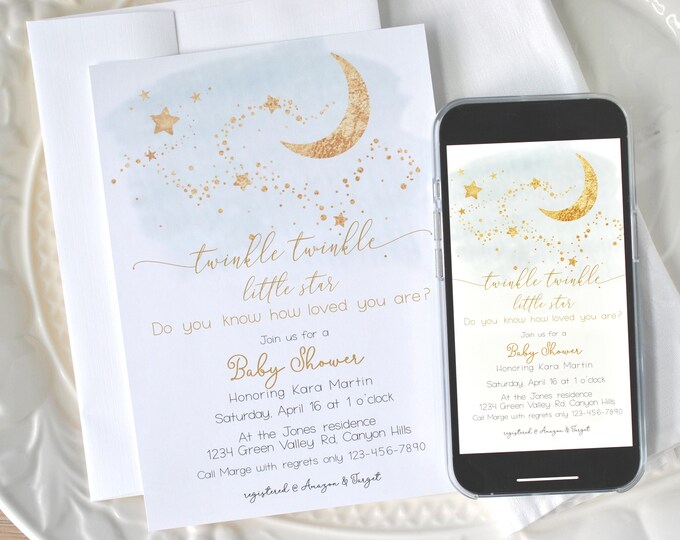 twinkle twinkle
little star
Do you know how loved you are?
Join us for a
Baby Shower
Honoring Kara Martin
Saturday, April 16 at 1 o'clock
At the Jones residence
1234 Green Valley Rd, Canyon Hills
Call Marge with regrets only 123-456-7890
registered @ Amazon & Target
twinkle twinkle
little star
Do you know how loved you are?
Join us for a
Baby Shower
Honoring Kara Martin
Saturday, April 16 at 1 o'clock
At the Jones residence
1234 Green Valley Rd, Canyon Hills
Call Marge with regrets only 123-456-7890
registered @ Amazon & Target